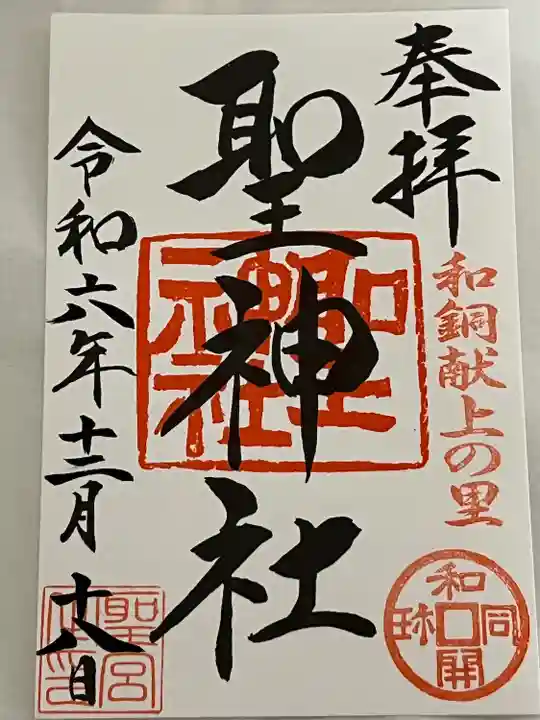 奉拝
和銅献上の里
和同開珎
聖神社
聖神社
令和六年十二月十八日